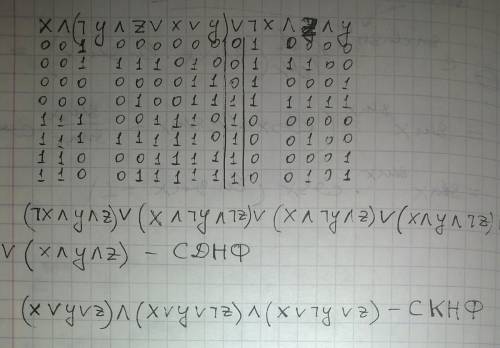 X∧(¬y∧z∨x∨y)∨¬x∧z∧y
0 0 1 0 0 0 0 0 0 0 1 0 0 0 0
0 0 1 1 1 1 0 1 0 0 1 1 1 0 0
0 0 0 0 0 0 0 1 1 0 1 0 0 0 1
0 0 0 0 1 0 0 1 1 1 1 1 1 1 1
1 1 1 0 0 1 1 1 0 1 0 0 0 0 0
1 1 1 1 1 1 1 1 0 1 0 0 1 0 0
1 1 0 0 0 1 1 1 1 1 0 0 0 0 1
1 1 0 0 1 1 1 1 1 1 0 0 1 0 1
(¬X∧y∧z)∨(X∧¬y∧¬z)∨(X∧¬y∧z)∨(x∧y∧¬z)
∨(x∧y∧z) – СДНФ
(x∨y∨z)∧(x∨y∨¬z)∧(x∨¬y∨z) – СКНФ